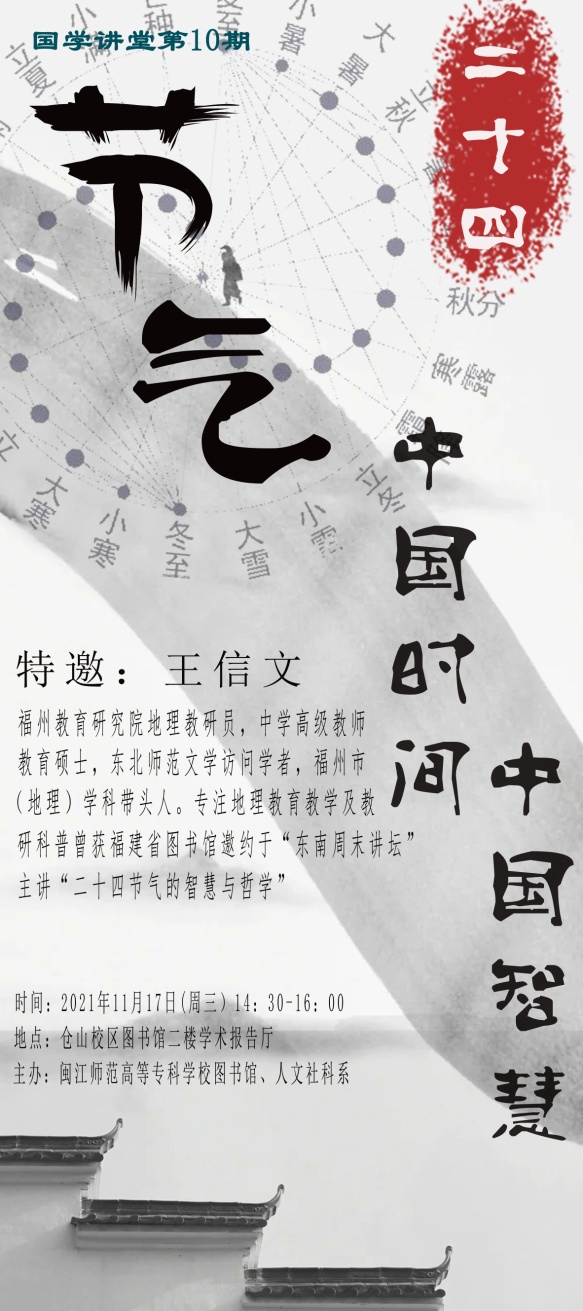 国学讲堂第10期
二十四
节气
中国时间
中国智慧
小暑
大暑
立秋
秋分
寒露
霜降
立冬
小雪
大雪
冬至
小寒
大寒
立
立夏
小满
芒种
特邀：王信文
福州教育研究院地理教研员，中学高级教师
教育硕士，东北师范文学访问学者，福州市
（地理）学科带头人。专注地理教育教学及教
研科普曾获福建省图书馆邀约于“东南周末讲坛”
主讲“二十四节气的智慧与哲学”
时间：2021年11月17日（周三）14：30-16：00
地点：仓山校区图书馆二楼学术报告厅
主办：闽江师范高等专科学校图书馆、人文社科系